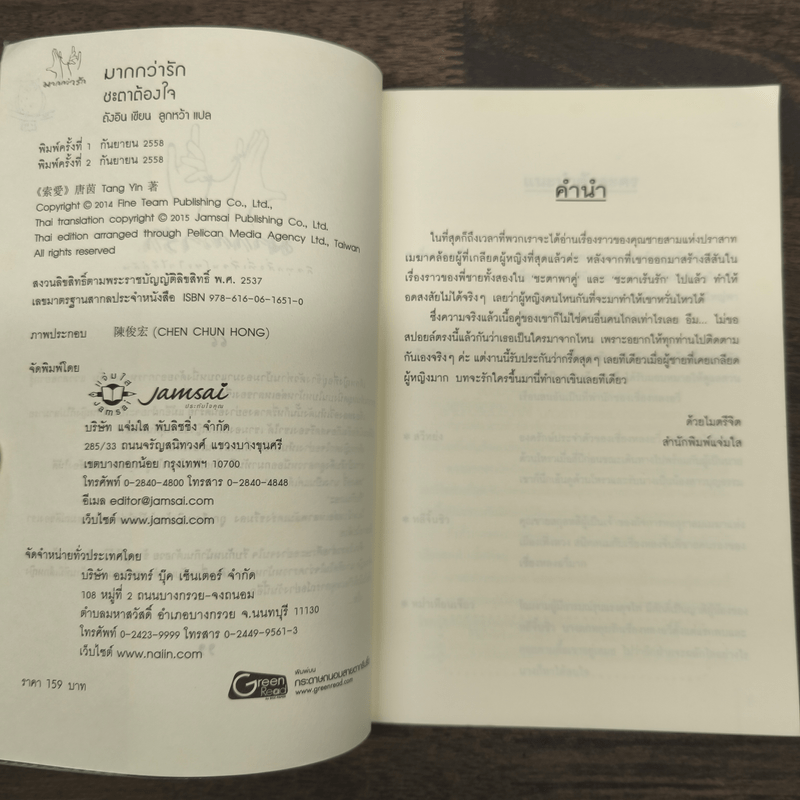 มากกว่ารัก
มากกว่ารัก
ชะตาต้องใจ
ถังอิน เขียน ลูกหว้า แปล
พิมพ์ครั้งที่ 1 กันยายน 2558
พิมพ์ครั้งที่ 2 กันยายน 2558
《索愛》唐茵 Tang Yin 著
Copyright © 2014 Fine Team Publishing Co., Ltd.,
Thai translation copyright © 2015 Jamsai Publishing Co., Ltd.
Thai edition arranged through Pelican Media Agency Ltd., Taiwan
All rights reserved
สงวนลิขสิทธิ์ตามพระราชบัญญัติลิขสิทธิ์ พ.ศ. 2537
เลขมาตรฐานสากลประจำหนังสือ ISBN 978-616-06-1651-0
ภาพประกอบ 陳俊宏 (CHEN CHUN HONG)
จัดพิมพ์โดย
แจ่มใส
Jamsai
Jamsai
ประทับใจคุณ
บริษัท แจ่มใส พับลิชชิ่ง จำกัด
285/33 ถนนจรัญสนิทวงศ์ แขวงบางขุนศรี
เขตบางกอกน้อย กรุงเทพฯ 10700
โทรศัพท์ 0-2840-4800 โทรสาร 0-2840-4848
อีเมล editor@jamsai.com
เว็บไซต์ www.jamsai.com
จัดจำหน่ายทั่วประเทศโดย
บริษัท อมรินทร์ บุ๊ค เซ็นเตอร์ จำกัด
108 หมู่ที่ 2 ถนนบางกรวย-จงถนอม
ตำบลมหาสวัสดิ์ อำเภอบางกรวย จ.นนทบุรี 11130
โทรศัพท์ 0-2423-9999 โทรสาร 0-2449-9561-3
เว็บไซต์ www.naiin.com
ราคา 159 บาท
Green Read
พิมพ์บน
กระดาษถนอมสายตากรีนรี้ด
www.greenread.com
คำนำ
ในที่สุดก็ถึงเวลาที่พวกเราจะได้อ่านเรื่องราวของคุณชายสามแห่งปราสาท
เมฆาคล้อยผู้ที่เกลียดผู้หญิงที่สุดแล้วค่ะ หลังจากที่เขาออกมาสร้างสีสันใน
เรื่องราวของพี่ชายทั้งสองใน ‘ชะตาพาคู่’ และ ‘ชะตาเร้นรัก’ ไปแล้ว ทำให้
อดสงสัยไม่ได้จริงๆ เลยว่าผู้หญิงคนไหนกันที่จะมาทำให้เขาหวั่นไหวได้
ซึ่งความจริงแล้วเนื้อคู่ของเขาก็ไม่ใช่คนอื่นคนไกลเท่าไรเลย อืม... ไม่ขอ
สปอยล์ตรงนี้แล้วกันว่าเธอเป็นใครมาจากไหน เพราะอยากให้ทุกท่านไปติดตาม
กันเองจริงๆ ค่ะ แต่งานนี้รับประกันว่ากรี๊ดสุดๆ เลยทีเดียวเมื่อผู้ชายที่เคยเกลียด
ผู้หญิงมาก บทจะรักใครขึ้นมานี่ทำเอาเขินเลยทีเดียว
ด้วยไมตรีจิต
สำนักพิมพ์แจ่มใส